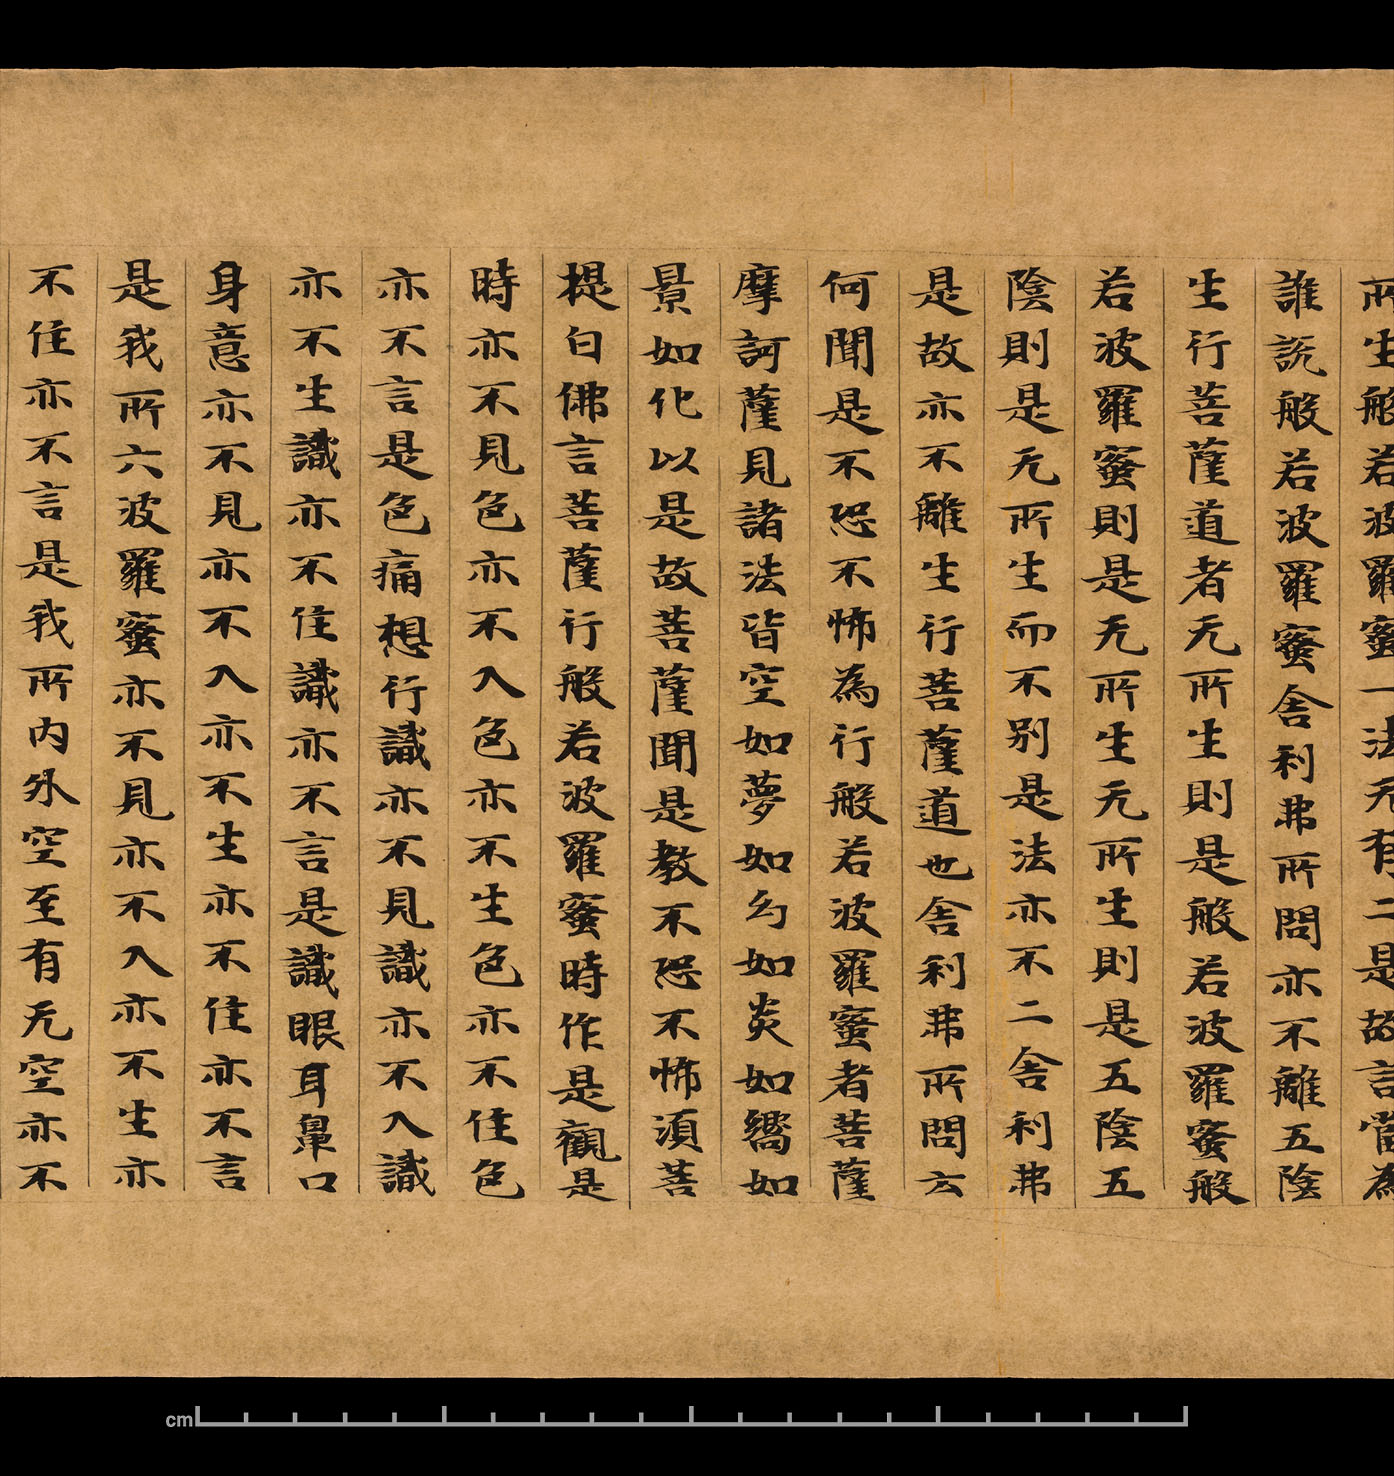 所生般若波羅蜜一法无有二是故言當為
誰說般若波羅蜜舍利弗所問亦不離五陰
生行菩薩道者无所生則是般若波羅蜜般
若波羅蜜則是无所生无所生則是五陰五
陰則是无所生而不別是法亦不二舍利弗
是故亦不離生行菩薩道也舍利弗所問云
何聞是不恐不怖為行般若波羅蜜者菩薩
摩訶薩見諸法皆空如夢如幻如炎如嚮如
景如化以是故菩薩聞是教不恐不怖湏菩
提白佛言菩薩行般若波羅蜜時作是觀是
時亦不見色亦不入色亦不生色亦不住色
亦不言是色痛想行識亦不見識亦不入識
亦不生識亦不住識亦不言是識眼耳鼻口
身意亦不見亦不入亦不生亦不住亦不言
是我所六波羅蜜亦不見亦不入亦不生亦
不住亦不言是我所內外空至有无空亦不
cm